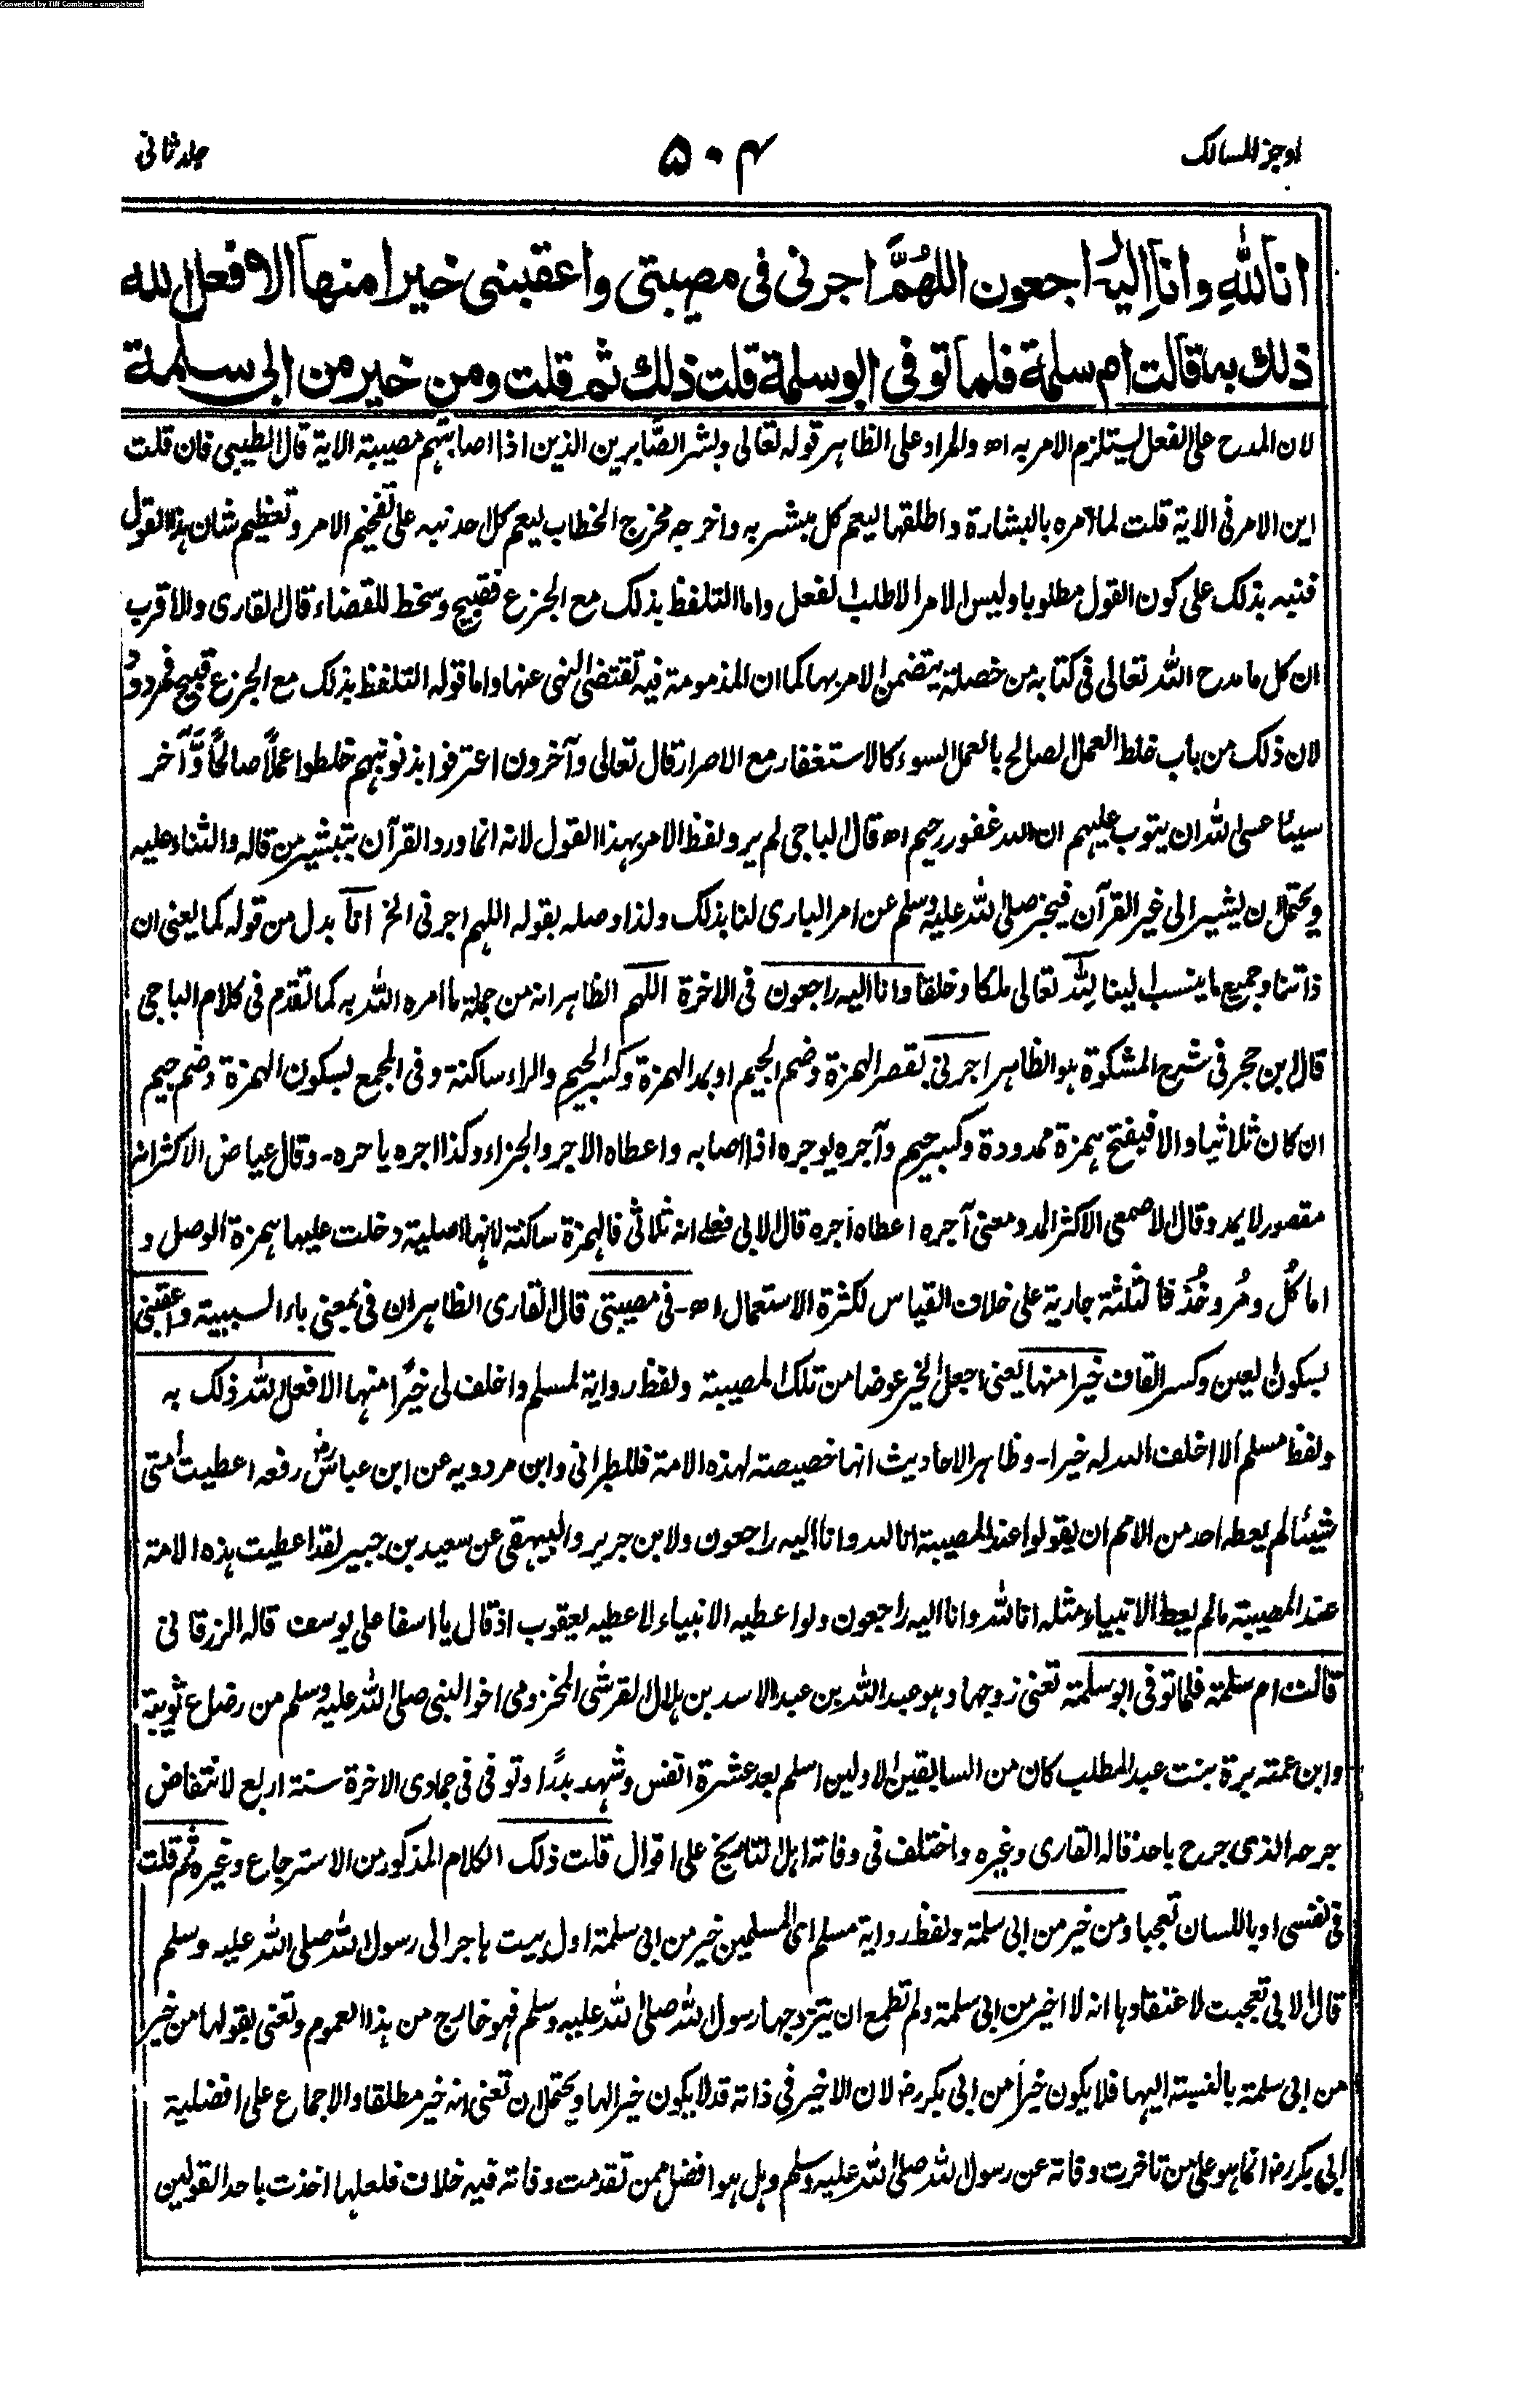 Converted by Tiff Combine - unregistered
اوجز المسالک ۵۰۴ جلد ثانی
انا لله وانا اليه راجعون اللهُمَّ اجرنی فی مصيبتی واعقبنی خيرا منها الا فعل الله
ذلك به قالت ام سلمة فلما توفی ابو سلمة قلت ذلك ثم قلت ومن خير من ابی سلمة
لان المدح علی الفعل یستلزم الامر به اھ والمراد علی الظاہر قوله تعالی وبشر الصَّابرین الذین اذا اصابتہم مصیبة الایة قال الطیبی فان قلت
این الامر فی الایة قلت لما امره بالبشارة واطلقہا لیعم کل مبشر به واخرجه مخرج الخطاب لیعم کل احد نبه علی تفخیم الامر وتعظیم شان ہذا القول
فنبه بذلک علی کون القول مطلوبا ولیس الامر الا طلب الفعل واما التلفظ بذلک مع الجزع فقبیح وسخط للقضاء قال القاری والاقرب
ان کل ما مدح اللہ تعالی فی کتابه من خصلة یتضمن الامر بہا کما ان المذمومة فیه تقتضی النہی عنہا واما قوله التلفظ بذلک مع الجزع قبیح فمردودٌ
لان ذلک من باب خلط العمل الصالح بالعمل السوء کالاستغفار مع الاصرار قال تعالی وآخرون اعترفوا بذنوبہم خلطوا عملًا صالحًا وَّآخر
سیئا عسی اللہ ان یتوب علیہم ان اللہ غفور رحیم اھ قال الباجی لم یرد لفظ الامر بہذا القول لانه انما ورد القرآن بتبشیر من قاله والثناء علیه
ویحتمل ان یشیر الی غیر القرآن فیخبر صلی اللہ علیه وسلم عن امر الباری لنا بذلک ولذا وصله بقوله اللہم اجرنی الخ انا بدل من قوله کما یعنی ان
ذاتنا وجمیع ما ینسب الینا للہ تعالی ملکا وخلقا وانا الیه راجعون فی الاخرة اللہم الظاہر انه من جملة ما امره اللہ به کما تقدم فی کلام الباجی
قال ابن حجر فی شرح المشکوة ہو الظاہر اجرنی بقصر الہمزة وضم الجیم او بمد الہمزة وکسر الجیم والراء ساکنة وفی المجمع بسکون الہمزة وضم جیم
ان کان ثلاثیا والا فیفتح ہمزة ممدودة وکسر جیم وآجره یوجره اذا اصابه واعطاه الاجر والجزاء وکذا اجره یاجره۔ وقال عیاض الاکثر انه
مقصور لا یمد وقال الاصمعی الاکثر المد ومعنی آجره اعطاه اجره قال الابی فعلی انه ثلاثی فالہمزة ساکنة لانہا اصلیة دخلت علیہا ہمزة الوصل و
اما کُل ومُر وخُذ فالثلثة جاریة علی خلاف القیاس لکثرة الاستعمال اھ۔ فی مصیبتی قال القاری الظاہر ان فی بمعنی باء السببیة واعقبنی
بسکون العین وکسر القاف خیرا منہا یعنی اجعل الخیر عوضا من تلک المصیبة ولفظ روایة لمسلم واخلف لی خیرًا منہا الا فعل اللہ ذلک به
ولفظ مسلم الا اخلف اللہ له خیرا۔ وظاہر الاحادیث انہا خصیصته لہذه الامة فللطبرانی وابن مردویه عن ابن عباسؓ رفعه اعطیت امتی
شیئا لم یعطه احد من الامم ان یقولوا عند المصیبة انا للہ وانا الیه راجعون ولابن جریر والبیہقی عن سعید بن جبیر لقد اعطیت ہذه الامة
عند المصیبة ما لم یعط الانبیاء مثله انا للہ وانا الیه راجعون ولو اعطیه الانبیاء لاعطیه یعقوب اذ قال یا اسفا علی یوسف قاله الزرقانی
قالت ام سلمة فلما توفی ابو سلمة تعنی زوجہا وہو عبد اللہ بن عبد الاسد بن ہلال القرشی المخزومی اخو النبی صلی اللہ علیه وسلم من رضاع ثویبة
وابن عمته برة بنت عبد المطلب کان من السابقین الاولین اسلم بعد عشرة انفس وشہد بدرًا وتوفی فی جمادی الاخرة سنة اربع لانتقاض
جرحه الذی جرح باحد قاله القاری وغیره واختلف فی وفاته اہل التاریخ علی اقوال قلت ذلک الکلام المذکور من الاسترجاع وغیره ثم قلت
فی نفسی او باللسان تعجبا ومن خیر من ابی سلمة ولفظ روایة مسلم ای المسلمین خیر من ابی سلمة اول بیت ہاجر الی رسول اللہ صلی اللہ علیه وسلم
قال الابی تعجبت لاعتقادہا انه لا اخیر من ابی سلمة ولم تطمع ان یتزوجہا رسول اللہ صلی اللہ علیه وسلم فہو خارج من ہذا العموم وتعنی بقولہا من خیر
من ابی سلمة بالنسبة الیہا فلا یکون خیرا من ابی بکر رض لان الاخیر فی ذاته قد لا یکون خیر الہا ویحتمل ان تعنی انه خیر مطلقا والاجماع علی افضلیة
ابی بکر رض انما ہو علی من تاخرت وفاته عن رسول اللہ صلی اللہ علیه وسلم وہل ہو افضل ممن تقدمت وفاته فیه خلاف فلعلہا اخذت باحد القولین